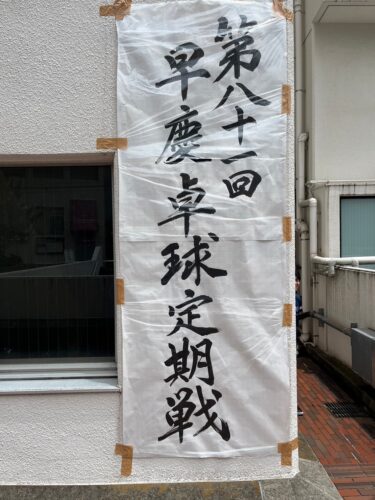 第八十一回
早慶卓球定期戦